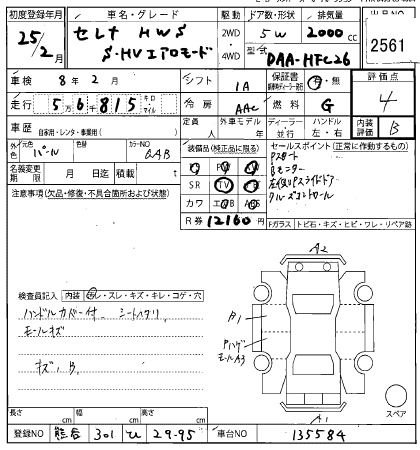 初度登録年月 車名・グレード 駆動 ドア数・形状 排気量 出品NO
25/2月 セレナ HWS 2WD・4WD 5W 2000cc 2561
S-HVエアロモード 型式 DAA-HFC26
車検 8年2月 シフト IA 保証書 有・無 評価点
走行 56815 キロ・マイル 冷房 AAC 燃料 G 4
車歴 自家用・レンタ・事業用( ) 定員 外車モデル 年 ディーラー 並行 ハンドル 左・右 内装評価 B
外色 元色 パール 色替 カラーNO QAB
装備品(純正品に限る) セールスポイント(正常に作動するもの)
名義変更期限 月 日迄 積載 t
SR TV
カワ エアB
Pスタート
Bモニター
左右Pスライドドア
クルーズコントロール
R券 12160円
Fガラス トビ石・キズ・ヒビ・ワレ・リペア跡
注意事項(欠品・修復・不具合箇所および状態)
A2
検査員記入 内装 ・スレ・キズ・キレ・コゲ・穴
ハンドルカバー付 シートヘタリ
モールキズ
キズ、B
B1
Pハゲ
モールA3
A1
スペア
長さ cm 幅 cm 高さ cm
登録NO 熊谷 301 ひ 29-95 車台NO 135584